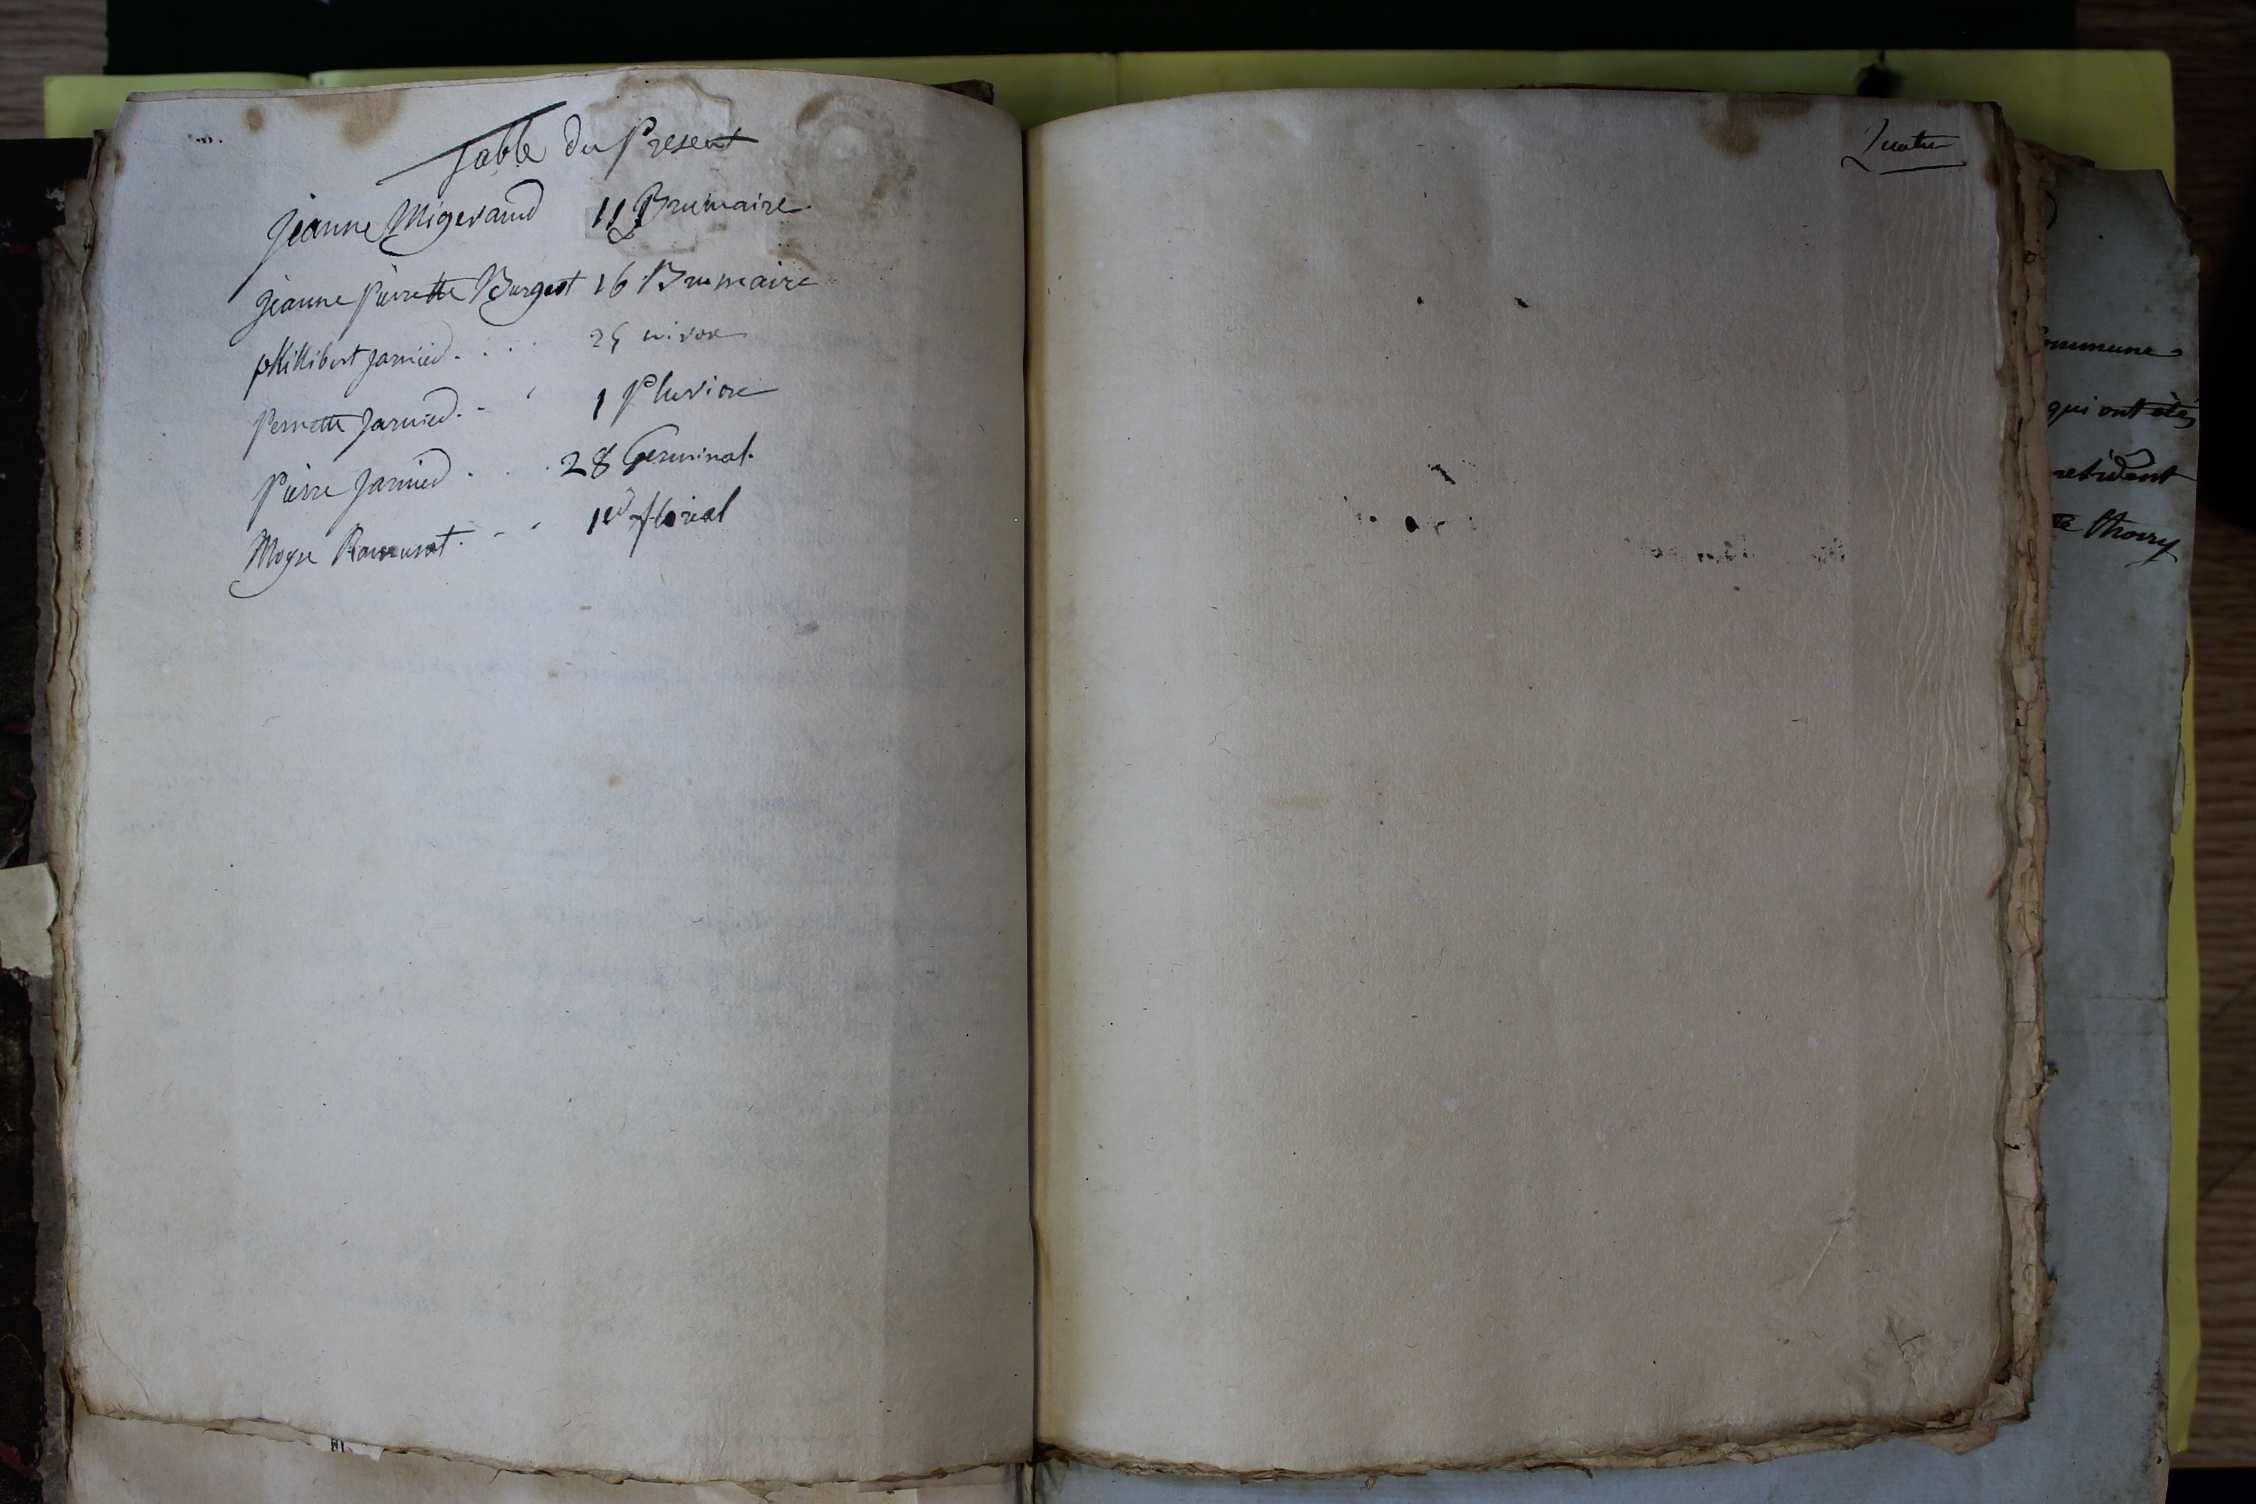 Table du Present
Jeanne Migerand 11 Brumaire.
Jeanne Pierrette Burgeot 16 Brumaire
phillibert Jarnied. . . . 25 nivose
Perrette Jarnied. - ' 1 Pluviose
Pierre Jarnied . . . 28 Germinal.
Moyse . - - 1er floreal
Quatre
Commune
qui ont étés
residant
thorry